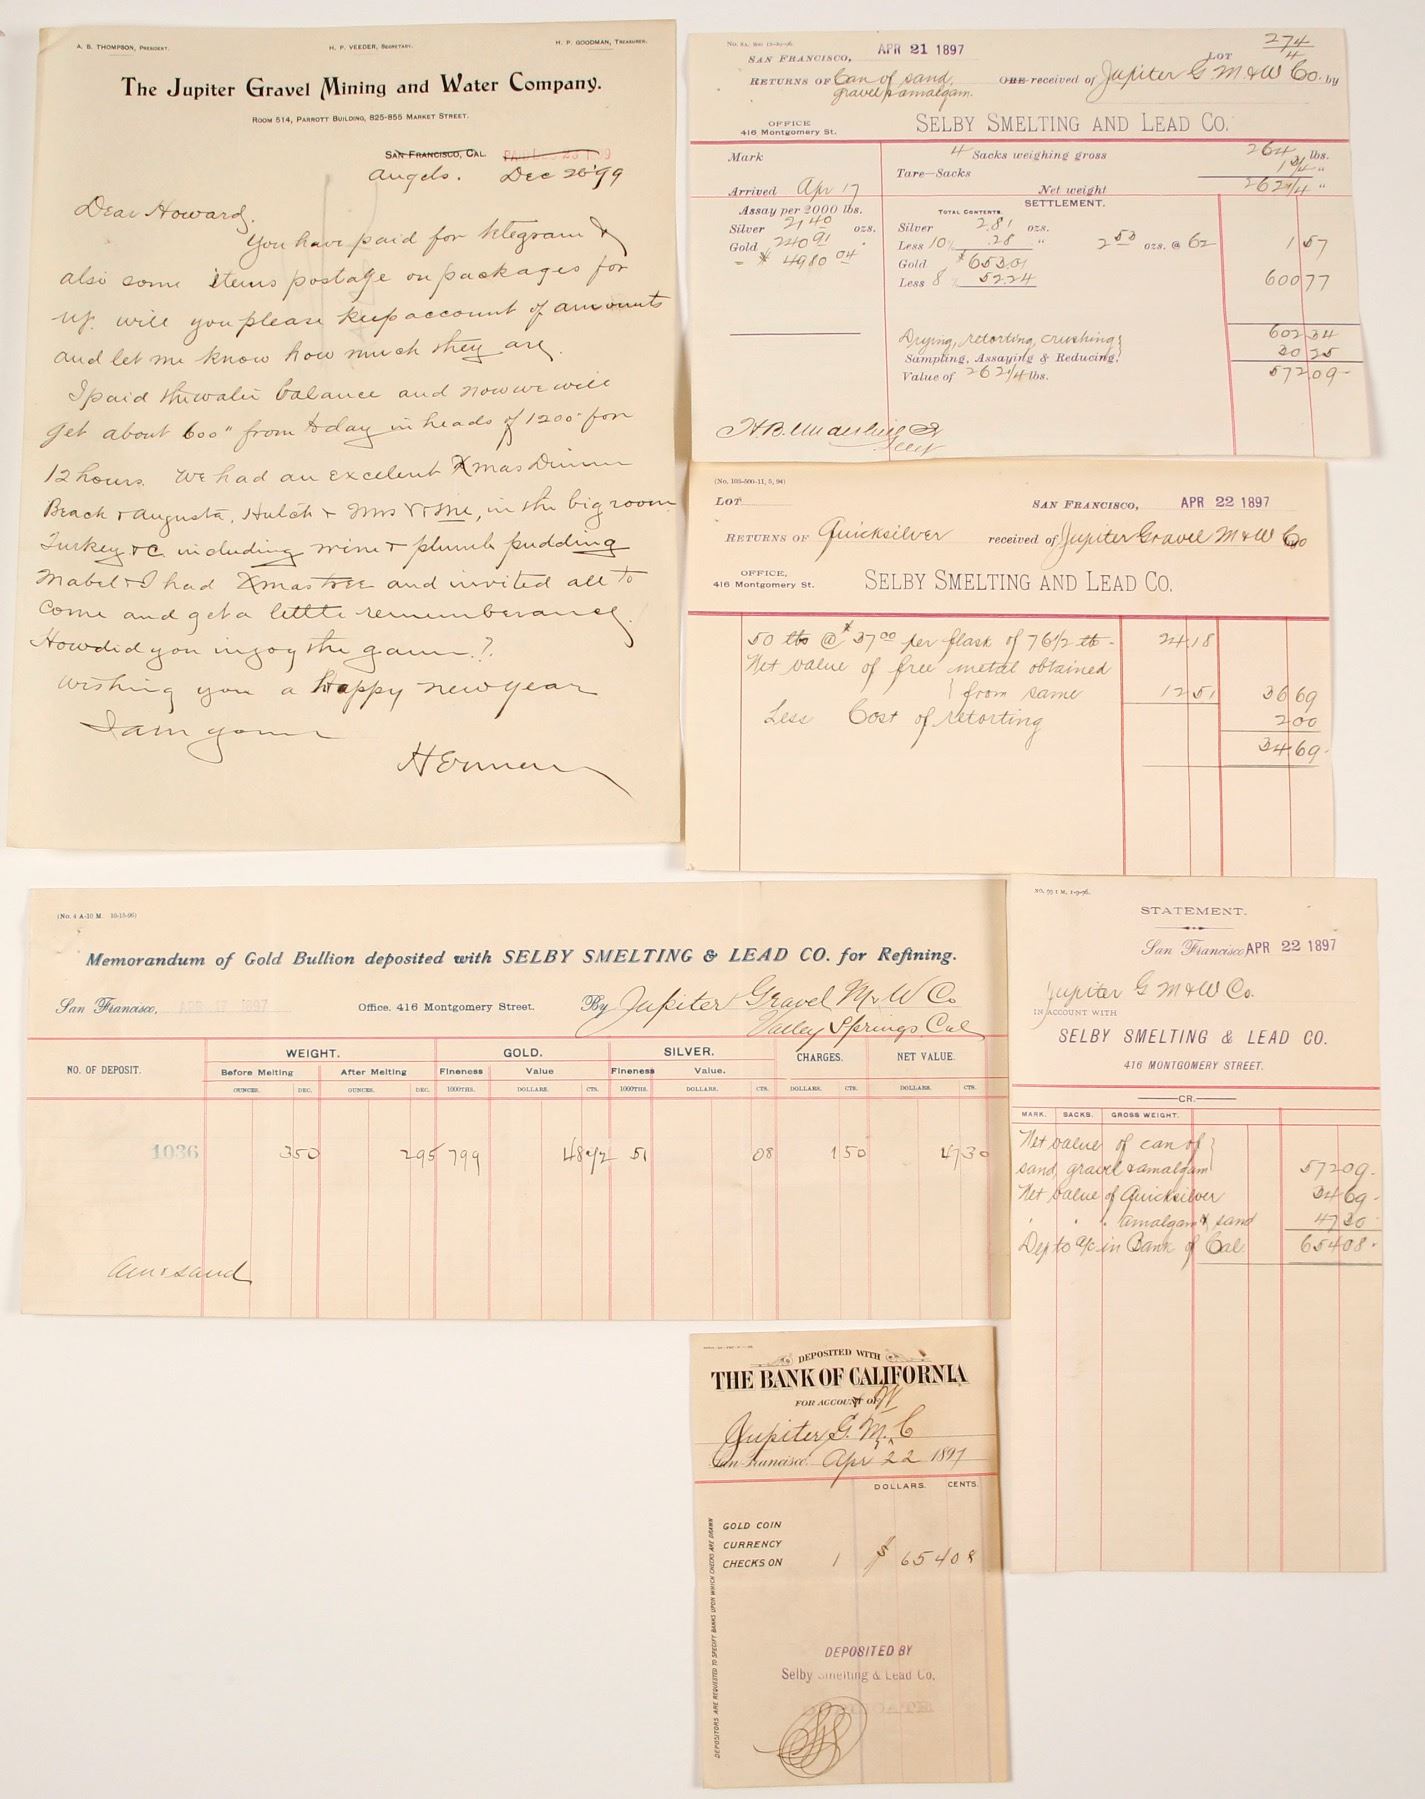 A. B. THOMPSON, PRESIDENT. H. P. VEEDER, SECRETARY. H. P. GOODMAN, TREASURER.
The Jupiter Gravel Mining and Water Company.
ROOM 514, PARROTT BUILDING, 825-855 MARKET STREET.
SAN FRANCISCO, CAL.
Angels. Dec 26 '99
Dear Howard,
You have paid for telegram &
also some items postage on packages for
up. will you please keep account of amounts
and let me know how much they are.
I paid the water balance and now we will
get about 600" from today in heads of 1200 for
12 hours. We had an excellent Xmas Dinner
Beach & Augusta, Hutch & Mrs V & me, in the big room
Turkey &c including wine & plumb pudding
Mabel & I had Xmas tree and invited all to
come and get a little rememberance.
How did you injoy the game?
Wishing you a Happy new year
I am yours
Herman
No. 8A.
274/4
SAN FRANCISCO, APR 21 1897 LOT
RETURNS OF Can of sand, gravel & amalgam. ORE received of Jupiter G M & W Co. by
OFFICE
416 Montgomery St.
SELBY SMELTING AND LEAD CO.
Mark
4 Sacks weighing gross 264 lbs.
Tare—Sacks 1 3/4 "
Arrived Apr 17
Net weight 262 1/4 "
Assay per 2000 lbs.
Silver 21.40 ozs.
Gold 240.91 "
= $4980.04
SETTLEMENT.
TOTAL CONTENTS.
Silver 2.81 ozs.
Less 10% .28 " 2.53 ozs. @ 62 1 57
Gold $653.01
Less 8% 52.24 600 77
602 34
Drying, retorting, crushing
Sampling, Assaying & Reducing, 30 25
Value of 262 1/4 lbs. 572 09
(No. 103-500-11, 5, 94)
LOT SAN FRANCISCO, APR 22 1897
RETURNS OF Quicksilver received of Jupiter Gravel M & W Co
OFFICE,
416 Montgomery St.
SELBY SMELTING AND LEAD CO.
50 lbs @ $37.00 per flask of 76 1/2 lbs - 24 18
Net value of free metal obtained
from same 12 51 36 69
Less Cost of retorting 2 00
34 69
(No. 4 A-10 M. 10-15-96)
Memorandum of Gold Bullion deposited with SELBY SMELTING & LEAD CO. for Refining.
San Francisco, APR 17 1897 Office, 416 Montgomery Street. By Jupiter Gravel M & W Co
Valley Springs Cal
NO. OF DEPOSIT. WEIGHT. GOLD. SILVER. CHARGES. NET VALUE.
Before Melting After Melting Fineness Value Fineness Value.
OUNCES. DEC. OUNCES. DEC. 1000THS. DOLLARS. CTS. 1000THS. DOLLARS. CTS. DOLLARS. CTS. DOLLARS. CTS.
1036 3 50 2 95 799 48 72 51 08 1 50 47 30
Am & sand
STATEMENT.
San Francisco, APR 22 1897
Jupiter G M & W Co.
IN ACCOUNT WITH
SELBY SMELTING & LEAD CO.
416 MONTGOMERY STREET.
CR.
MARK. SACKS. GROSS WEIGHT.
Net value of can of
sand, gravel & amalgam 572 09
Net value of Quicksilver 34 69
" " " amalgam & sand 47 30
Dep to a/c in Bank of Cal. 654 08
DEPOSITED WITH
THE BANK OF CALIFORNIA
FOR ACCOUNT OF
Jupiter G. M. & W C
San Francisco Apr 22 1897
DOLLARS. CENTS.
GOLD COIN
CURRENCY
CHECKS ON 1 $ 654 08
DEPOSITORS ARE REQUESTED TO SPECIFY BANKS UPON WHICH CHECKS ARE DRAWN
DEPOSITED BY
Selby Smelting & Lead Co.
DUPLICATE